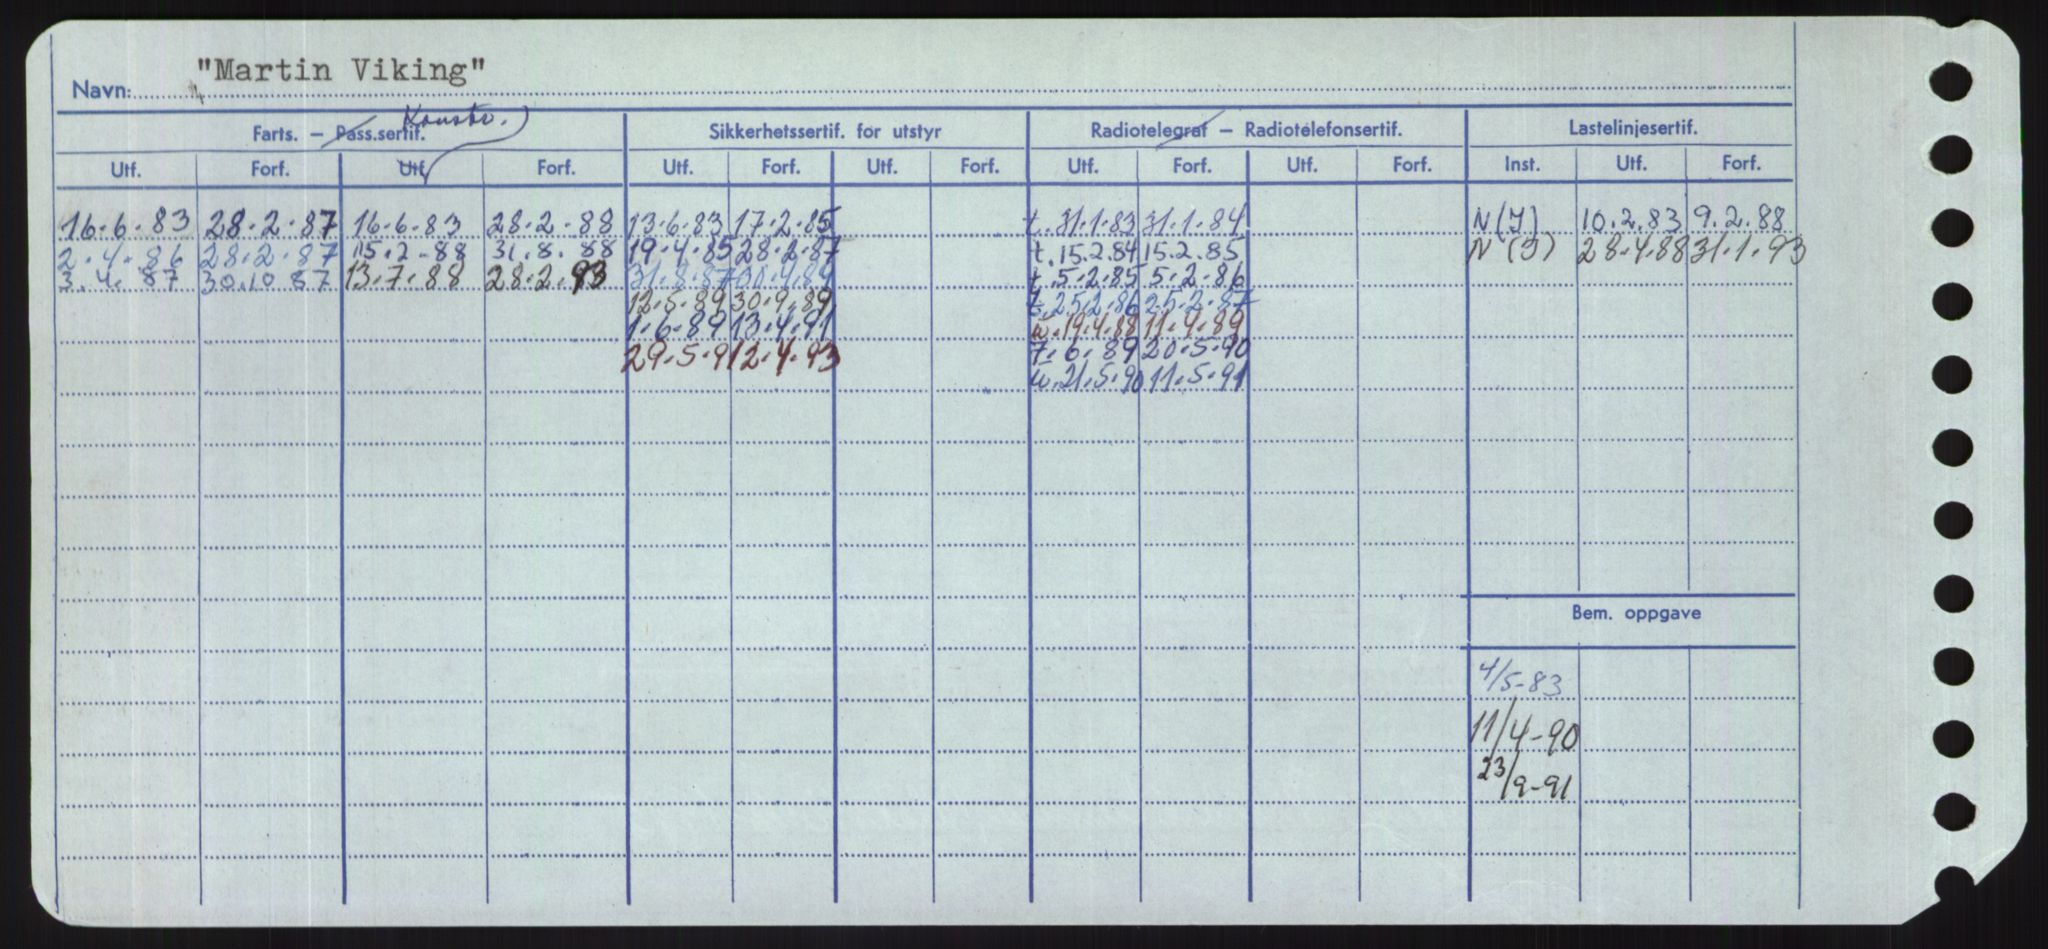 Navn: "Martin Viking"
Konstr.
Farts. – Pass.sertif. Sikkerhetssertif. for utstyr Radiotelegraf – Radiotelefonsertif. Lastelinjesertif.
Utf. Forf. Utf. Forf. Utf. Forf. Utf. Forf. Utf. Forf. Utf. Forf. Inst. Utf. Forf.
16.6.83 28.2.87 16.6.83 28.2.88 13.6.83 17.2.85 t. 31.1.83 31.1.84 N(J) 10.2.83 9.2.88
2.4.86 28.2.87 15.2.88 31.8.88 19.4.85 28.2.87 t. 15.2.84 15.2.85 N(J) 28.4.88 31.1.93
3.4.87 30.10.87 13.7.88 28.2.93 31.8.87 30.4.89 t. 5.2.85 5.2.86
12.5.89 30.9.89 t. 25.2.86 25.2.87
1.6.89 13.4.91 w. 19.4.88 11.4.89
29.5.91 2.4.93 7.6.89 20.5.90
w. 21.5.90 11.5.91
Bem. oppgave
4/5-83
11/4-90
23/9-91